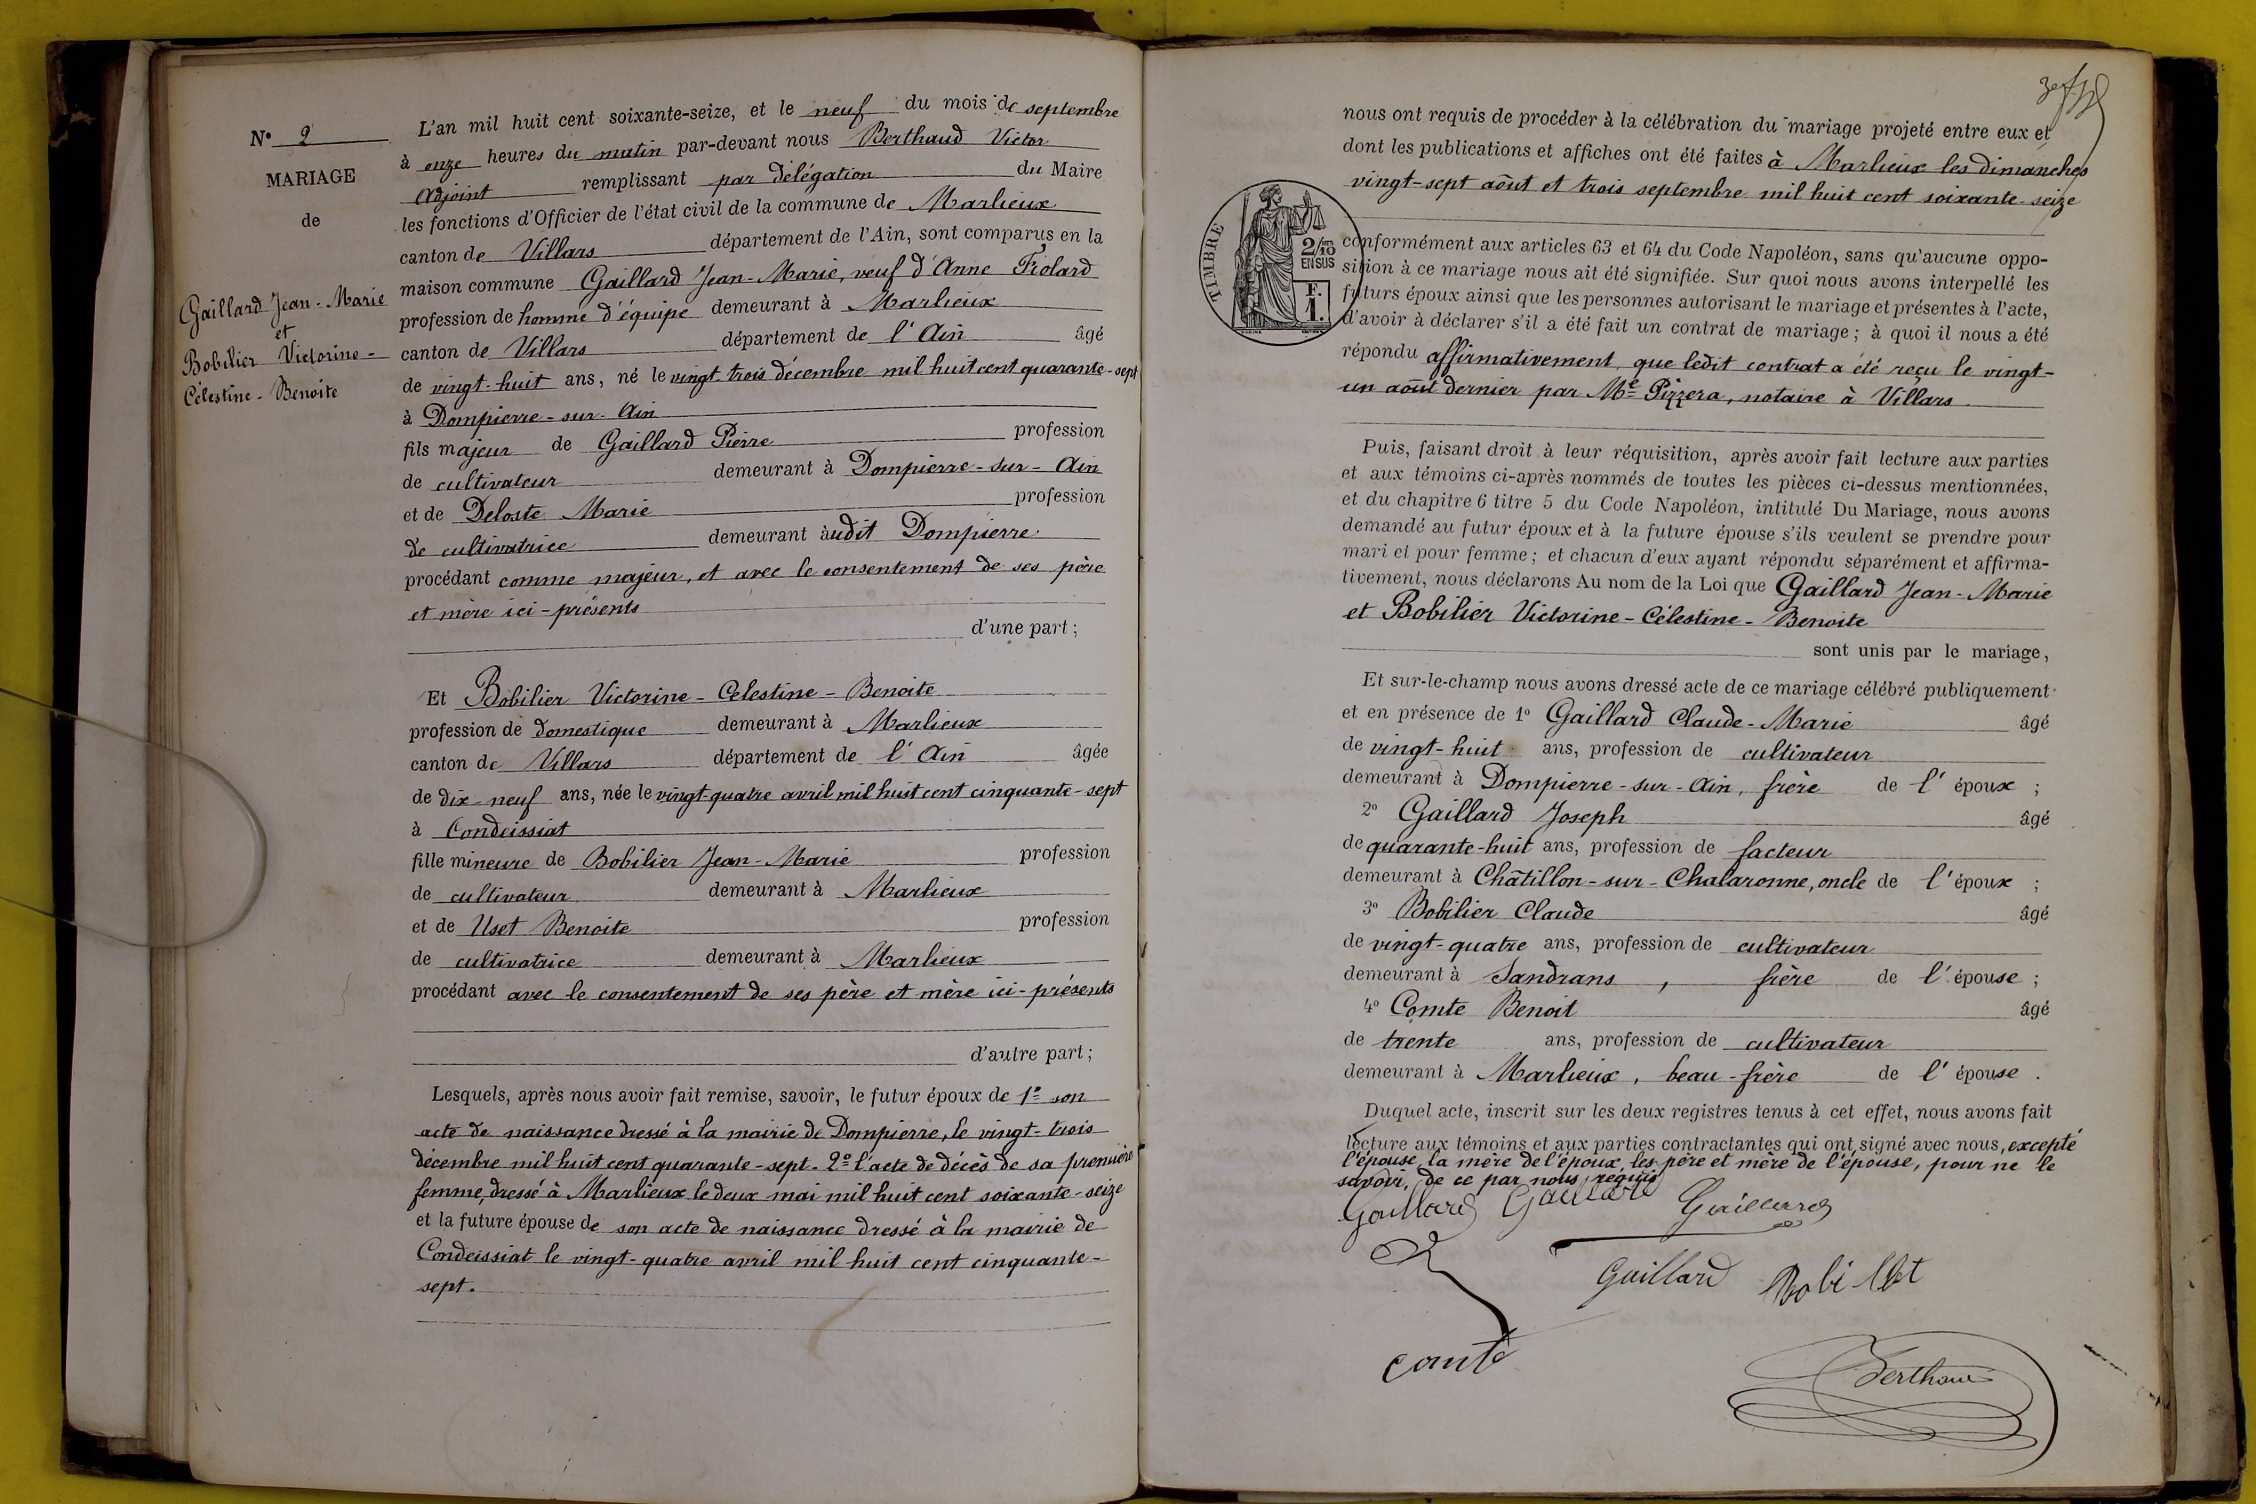 N° 2
MARIAGE
de
Gaillard Jean-Marie
et
Bobilier Victorine-
Célestine-Benoite
L'an mil huit cent soixante-seize, et le neuf du mois de septembre
à onze heures du matin par-devant nous Berthaud Victor
Adjoint remplissant par délégation du Maire
les fonctions d'Officier de l'état civil de la commune de Marlieux
canton de Villars département de l'Ain, sont comparus en la
maison commune Gaillard Jean-Marie, veuf d'Anne Frolard
profession de homme d'équipe demeurant à Marlieux
canton de Villars département de l'Ain âgé
de vingt-huit ans, né le vingt-trois décembre mil huit cent quarante-sept
à Dompierre-sur-Ain
fils majeur de Gaillard Pierre profession
de cultivateur demeurant à Dompierre-sur-Ain
et de Deloste Marie profession
de cultivatrice demeurant àudit Dompierre
procédant comme majeur, et avec le consentement de ses père
et mère ici-présents
d'une part;
Et Bobilier Victorine-Célestine-Benoite
profession de domestique demeurant à Marlieux
canton de Villars département de l'Ain âgée
de dix-neuf ans, née le vingt-quatre avril mil huit cent cinquante-sept
à Condeissiat
fille mineure de Bobilier Jean-Marie profession
de cultivateur demeurant à Marlieux
et de Uset Benoite profession
de cultivatrice demeurant à Marlieux
procédant avec le consentement de ses père et mère ici-présents
d'autre part;
Lesquels, après nous avoir fait remise, savoir, le futur époux de 1° son
acte de naissance dressé à la mairie de Dompierre, le vingt-trois
décembre mil huit cent quarante-sept. 2° l'acte de décès de sa première
femme, dressé à Marlieux le deux mai mil huit cent soixante-seize
et la future épouse de son acte de naissance dressé à la mairie de
Condeissiat le vingt-quatre avril mil huit cent cinquante-
sept.
nous ont requis de procéder à la célébration du mariage projeté entre eux et
dont les publications et affiches ont été faites à Marlieux les dimanches
vingt-sept août et trois septembre mil huit cent soixante-seize
TIMBRE
2/10 EN SUS
F. 1.
conformément aux articles 63 et 64 du Code Napoléon, sans qu'aucune oppo-
sition à ce mariage nous ait été signifiée. Sur quoi nous avons interpellé les
futurs époux ainsi que les personnes autorisant le mariage et présentes à l'acte,
d'avoir à déclarer s'il a été fait un contrat de mariage; à quoi il nous a été
répondu affirmativement, que ledit contrat a été reçu le vingt-
un août dernier par Me Pizzera, notaire à Villars
Puis, faisant droit à leur réquisition, après avoir fait lecture aux parties
et aux témoins ci-après nommés de toutes les pièces ci-dessus mentionnées,
et du chapitre 6 titre 5 du Code Napoléon, intitulé Du Mariage, nous avons
demandé au futur époux et à la future épouse s'ils veulent se prendre pour
mari et pour femme; et chacun d'eux ayant répondu séparément et affirma-
tivement, nous déclarons Au nom de la Loi que Gaillard Jean-Marie
et Bobilier Victorine-Célestine-Benoite
sont unis par le mariage,
Et sur-le-champ nous avons dressé acte de ce mariage célébré publiquement
et en présence de 1° Gaillard Claude-Marie âgé
de vingt-huit ans, profession de cultivateur
demeurant à Dompierre-sur-Ain, frère de l'époux ;
2° Gaillard Joseph âgé
de quarante-huit ans, profession de facteur
demeurant à Châtillon-sur-Chalaronne, oncle de l'époux ;
3° Bobilier Claude âgé
de vingt-quatre ans, profession de cultivateur
demeurant à Sandrans, frère de l'épouse ;
4° Comte Benoit âgé
de trente ans, profession de cultivateur
demeurant à Marlieux, beau-frère de l'épouse .
Duquel acte, inscrit sur les deux registres tenus à cet effet, nous avons fait
lecture aux témoins et aux parties contractantes qui ont signé avec nous, excepté
l'épouse, la mère de l'époux, les père et mère de l'épouse, pour ne le
savoir, de ce par nous requis
Gaillard Gaillard Gaillard
Gaillard Bobillet
comte
Berthaud